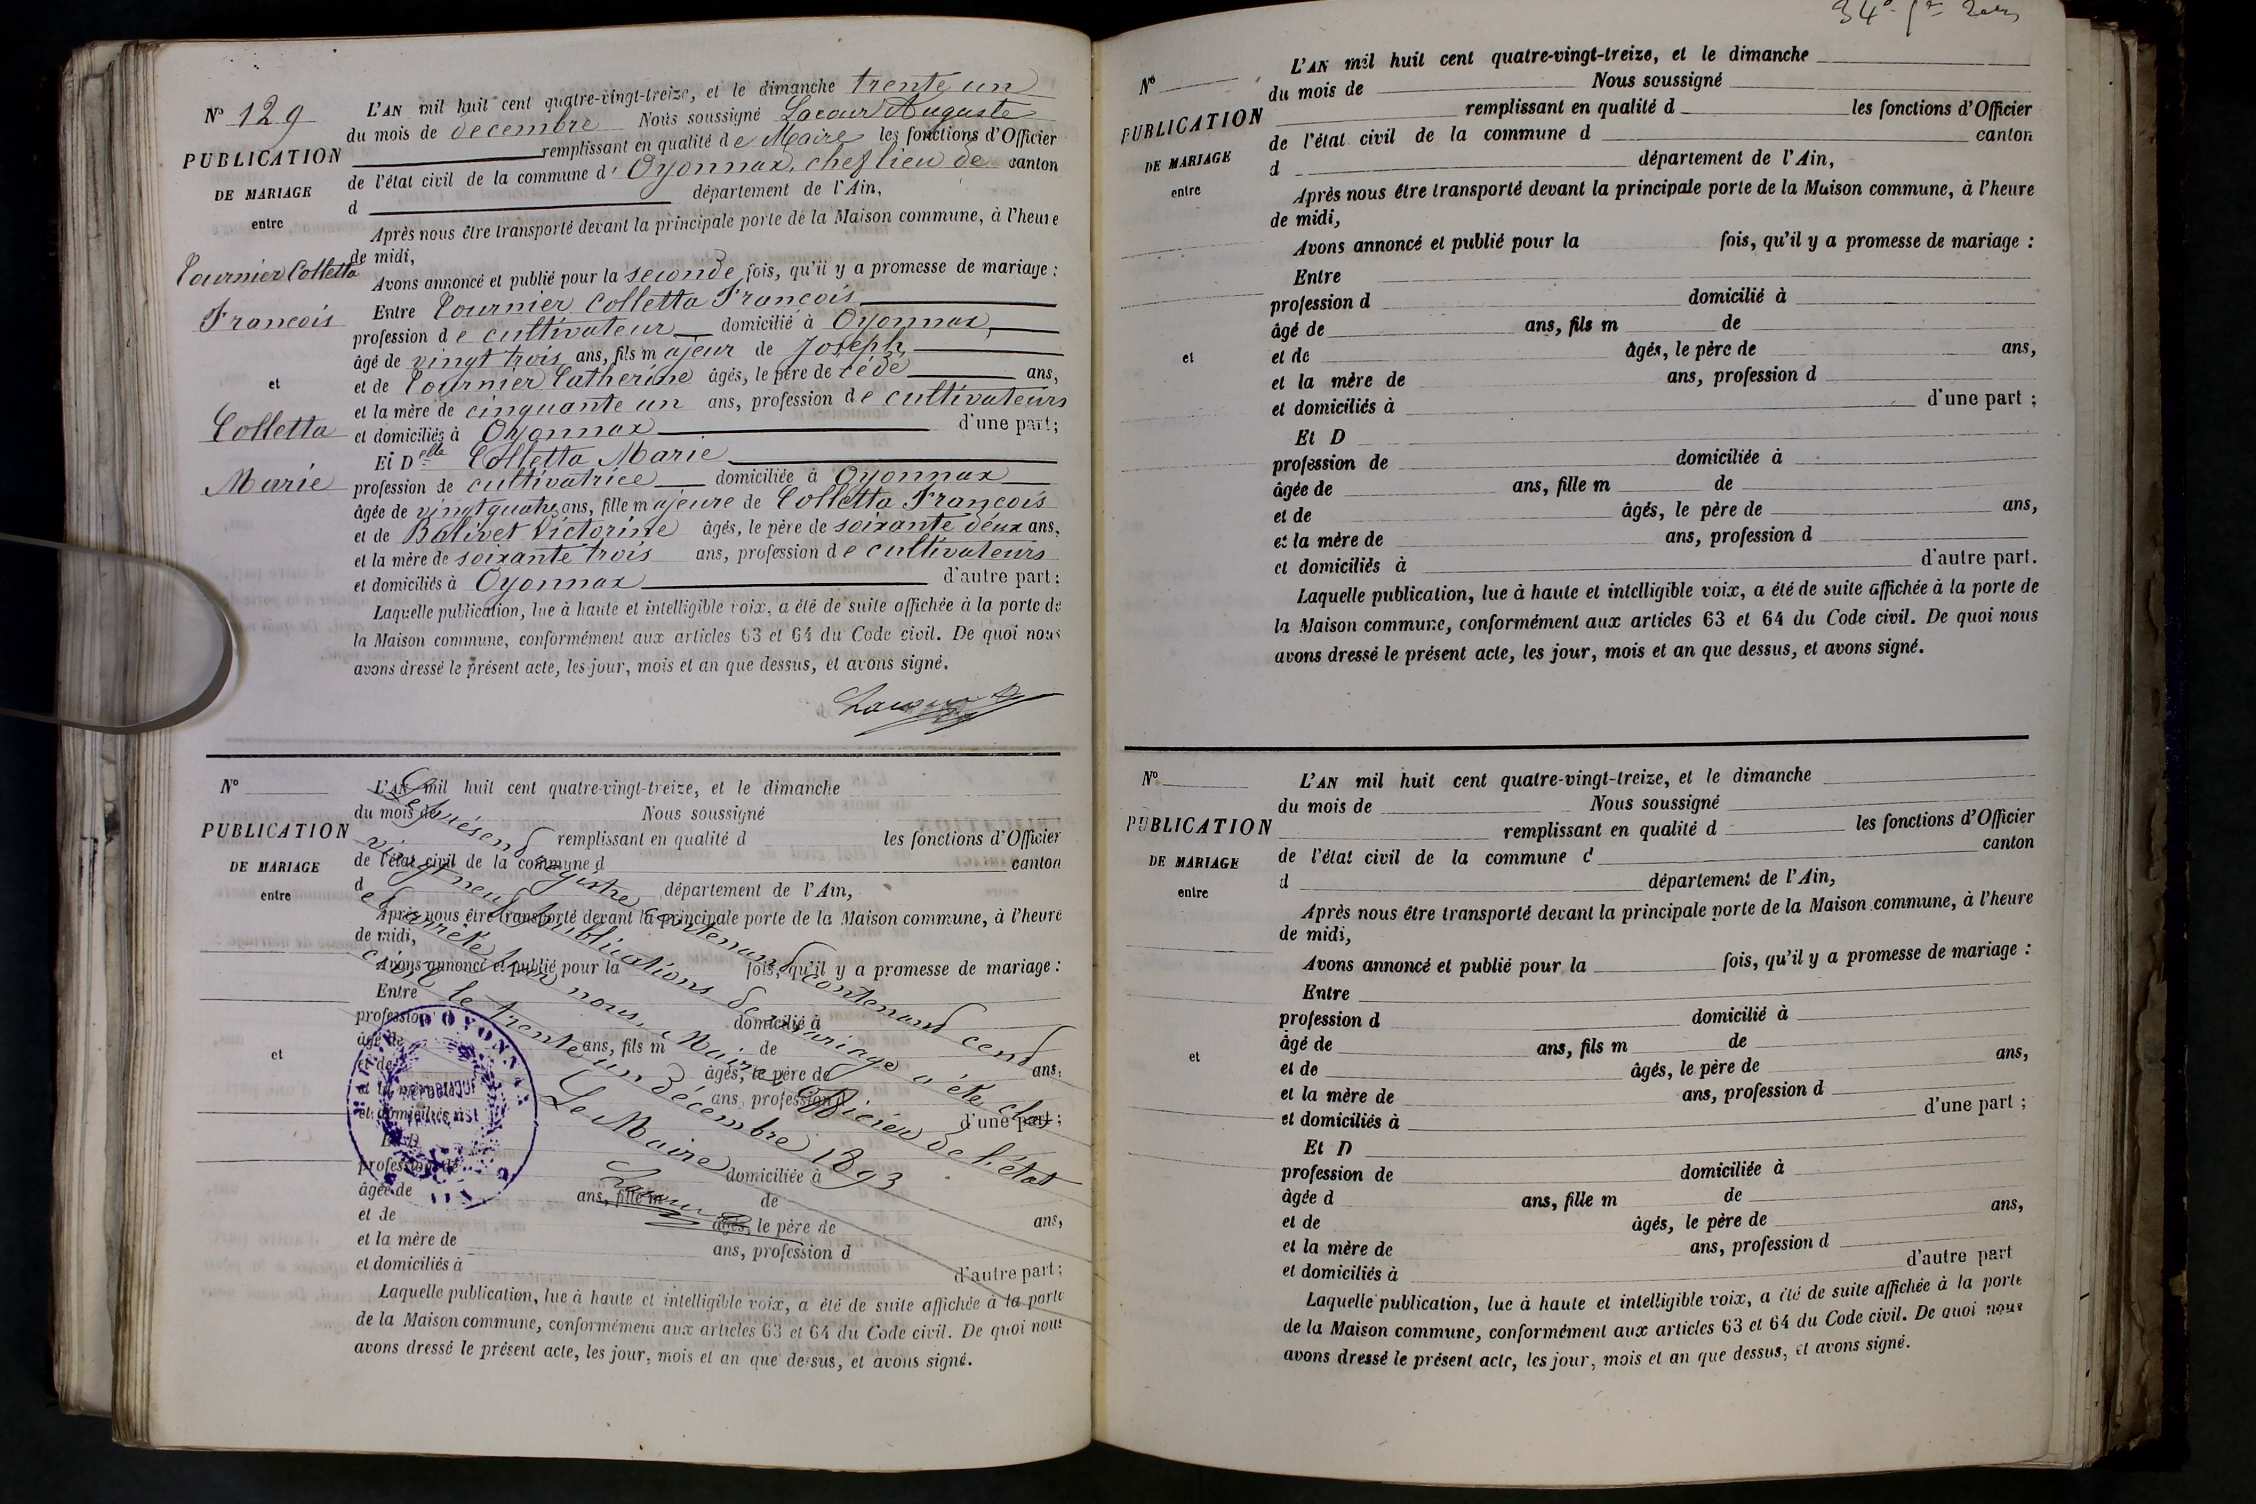 N° 129
PUBLICATION
DE MARIAGE
entre
Tournier Colletta
François
et
Colletta
Marie
L'AN mil huit cent quatre-vingt-treize, et le dimanche trente un
du mois de décembre Nous soussigné Lacour Auguste
remplissant en qualité de Maire les fonctions d'Officier
de l'état civil de la commune d'Oyonnax, chef lieu de canton
d département de l'Ain,
Après nous être transporté devant la principale porte de la Maison commune, à l'heure
de midi,
Avons annoncé et publié pour la seconde fois, qu'il y a promesse de mariage :
Entre Tournier Colletta François
profession de cultivateur domicilié à Oyonnax
âgé de vingt trois ans, fils majeur de Joseph,
et de Tournier Catherine âgés, le père de cédé ans,
et la mère de cinquante un ans, profession de cultivateurs
et domiciliés à Oyonnax d'une part;
Et Delle Colletta Marie
profession de cultivatrice domiciliée à Oyonnax
âgée de vingt quatre ans, fille majeure de Colletta François
et de Bolivet Victorine âgés, le père de soixante deux ans,
et la mère de soixante trois ans, profession de cultivateurs
et domiciliés à Oyonnax d'autre part;
Laquelle publication, lue à haute et intelligible voix, a été de suite affichée à la porte de
la Maison commune, conformément aux articles 63 et 64 du Code civil. De quoi nous
avons dressé le présent acte, les jour, mois et an que dessus, et avons signé.
Lacour
N°
PUBLICATION
DE MARIAGE
entre
et
L'AN mil huit cent quatre-vingt-treize, et le dimanche
du mois de Nous soussigné
remplissant en qualité d les fonctions d'Officier
de l'état civil de la commune d canton
d département de l'Ain,
Après nous être transporté devant la principale porte de la Maison commune, à l'heure
de midi,
Avons annoncé et publié pour la fois, qu'il y a promesse de mariage :
Entre
profession domicilié à
âgé de ans, fils m de
et de âgés, le père de ans,
et la mère ans, profession d
et domiciliés à d'une part;
Et D
profession de domiciliée à
âgée de ans, fille m de
et de âgés, le père de ans,
et la mère de ans, profession d
et domiciliés à d'autre part;
Laquelle publication, lue à haute et intelligible voix, a été de suite affichée à la porte
de la Maison commune, conformément aux articles 63 et 64 du Code civil. De quoi nous
avons dressé le présent acte, les jour, mois et an que dessus, et avons signé.
Le présent registre contenant contenant cent
vingt neuf publications de mariage a été clos
et arrêté par nous, Maire Officier de l'état
civil le trente un décembre 1893
Le Maire
Lacour
D'OYONNAX
REPUBLIQUE
FRANÇAISE
N°
PUBLICATION
DE MARIAGE
entre
et
L'AN mil huit cent quatre-vingt-treize, et le dimanche
du mois de Nous soussigné
remplissant en qualité d les fonctions d'Officier
de l'état civil de la commune d canton
d département de l'Ain,
Après nous être transporté devant la principale porte de la Maison commune, à l'heure
de midi,
Avons annoncé et publié pour la fois, qu'il y a promesse de mariage :
Entre
profession d domicilié à
âgé de ans, fils m de
et de âgés, le père de ans,
et la mère de ans, profession d
et domiciliés à d'une part ;
Et D
profession de domiciliée à
âgée de ans, fille m de
et de âgés, le père de ans,
et la mère de ans, profession d
et domiciliés à d'autre part.
Laquelle publication, lue à haute et intelligible voix, a été de suite affichée à la porte de
la Maison commune, conformément aux articles 63 et 64 du Code civil. De quoi nous
avons dressé le présent acte, les jour, mois et an que dessus, et avons signé.
N°
PUBLICATION
DE MARIAGE
entre
et
L'AN mil huit cent quatre-vingt-treize, et le dimanche
du mois de Nous soussigné
remplissant en qualité d les fonctions d'Officier
de l'état civil de la commune d canton
d département de l'Ain,
Après nous être transporté devant la principale porte de la Maison commune, à l'heure
de midi,
Avons annoncé et publié pour la fois, qu'il y a promesse de mariage :
Entre
profession d domicilié à
âgé de ans, fils m de
et de âgés, le père de ans,
et la mère de ans, profession d
et domiciliés à d'une part ;
Et D
profession de domiciliée à
âgée d ans, fille m de
et de âgés, le père de ans,
et la mère de ans, profession d
et domiciliés à d'autre part
Laquelle publication, lue à haute et intelligible voix, a été de suite affichée à la porte
de la Maison commune, conformément aux articles 63 et 64 du Code civil. De quoi nous
avons dressé le présent acte, les jour, mois et an que dessus, et avons signé.